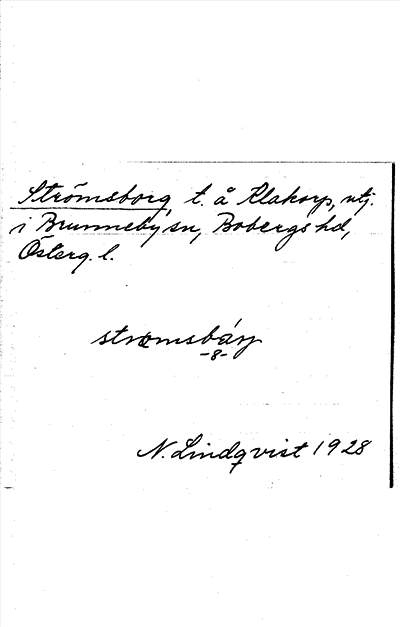 Strömsborg, t. å Klakorp, utj.
i Brunneby sn, Bobergs hd,
Österg. l.
strömsbárj
-8-
N. Lindqvist 1928